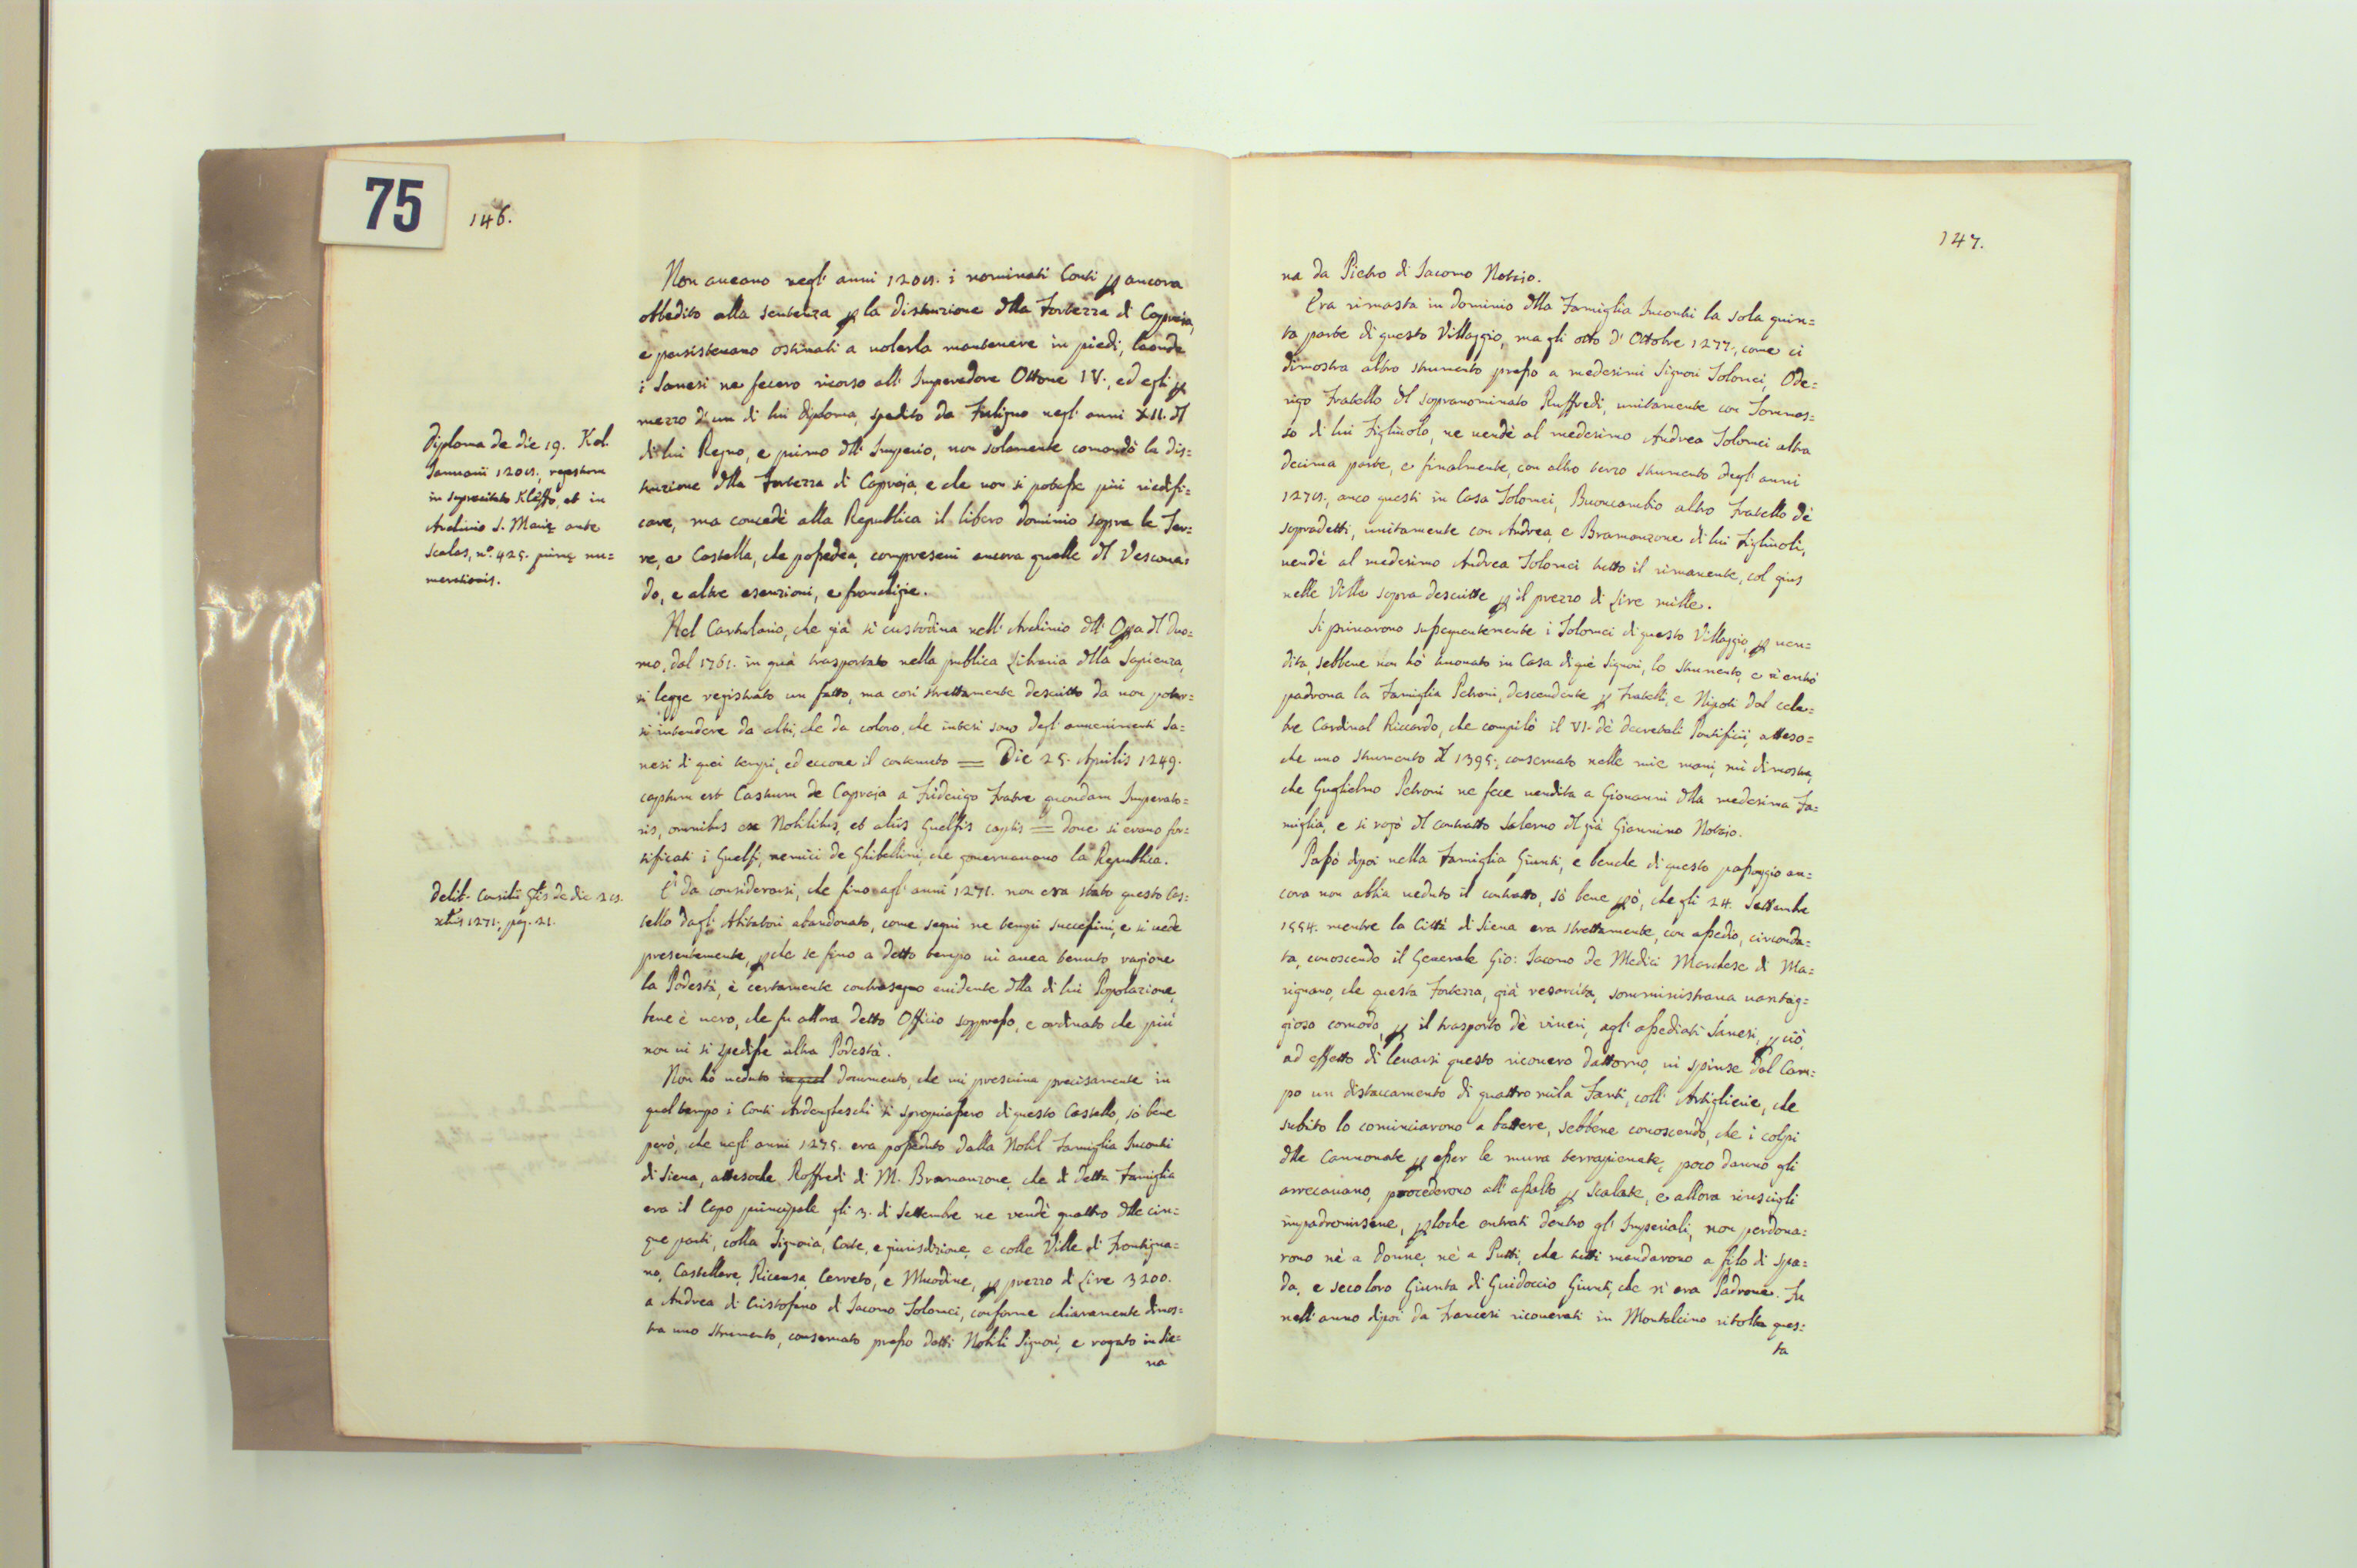 75
146.
Non aueano negl' anni 1209. i nominati Conti ꝑ ancora
obbedito alla sentenza ꝑ la distruzione dlla Fortezza di Capraja,
e persisteuano ostinati a uolerla mantenere in piedi, laonde
i Sanesi ne fecero ricorso all' Imperadore Ottone IV., ed egli ꝑ
mezzo d'un di lui diploma, spedito da Fuligno negl' anni XII. dl
di lui Regno, e primo dll' Imperio, non solamente comandò la dis=
truzione dlla Fortezza di Capraja, e che non si potesse più riedifi=
care, ma concedè alla Republica il libero dominio sopra le Ter=
re, e Castella, che possedea, compreseui ancora quelle dl Vescoua=
do, e altre esenzioni, e franchigie.
Diploma de die 19. Kal.
Januarii 1209., registum
in supracitato Kleffo, et in
Archivio S. Marię ante
Scalas, nº. 425. primę nu=
merationis.
Nel Cartulario, che già si custodiua nell' Archiuio dll' Oꝑa dl Duo=
mo, dal 1761. in quà trasportato nella publica Libraria dlla Sapienza,
si legge registrato un fatto, ma così strettamente descritto da non poter=
si intendere da altri, che da coloro, che intesi sono degl' auuenimenti Sa=
nesi di quei tempi, ed eccone il contenuto = Die 25. Aprilis 1249.
captum est Castrum de Capraja a Friderigo Fratre quondam Imperato=
ris, omnibus ex Nobilibus, et aliis Guelfis captis = doue si erano for=
tificati i Guelfi, nemici de Ghibellini, che gouernauano la Republica.
È da considerarsi, che fino agl' anni 1271. non era stato questo Cas=
tello dagl' Abitatori abandonato, come seguì ne tempi successiui, e si uede
presentemente, ꝑche se fino a detto tempo ui auea tenuto ragione
la Podestà, è certamente contrasegno euidente dlla di lui Popolazione,
bene è uero, che fu allora detto Officio soppresso, e ordinato che più
non ui si spedisse altra Podestà.
Delib. Consilii Gñis de die 29.
xbris 1271., pag. 21.
Non hò ueduto in qual documento, che mi prescriua precisamente in
qual tempo i Conti Ardengheschi si spropriassero di questo Castello, sò bene
però, che negl' anni 1275. era posseduto dalla Nobil Famiglia Incontri
di Siena, attesoche Roffredi di M. Bramanzone, che di detta Famiglia
era il Capo principale, gli 3. di Settembre ne vendè quattro dlle cin=
que parti, colla Signoria, Corte, e giurisdizione, e colle Ville di Frontigna=
no, Castellare, Ricensa, Cerreto, e Mucdine, ꝑ prezzo di Lire 3200.
a Andrea di Cristofano di Jacomo Tolomei, conforme chiaramente dimos=
tra uno strumento, conseruato presso detti Nobili Signori, e rogato in Sie=
na
147.
na da Pietro di Jacomo Notaio.
Era rimasta in dominio dlla Famiglia Incontri la sola quin=
ta parte di questo Villaggio, ma gli otto d' Ottobre 1277., come ci
dimostra altro strumento presso a medesimi Signori Tolomei, Ode=
rigo Fratello dl sopranominato Ruffredi, unitamente con Tommas=
so di lui Figliuolo, ne uendè al medesimo Andrea Tolomei altra
decima parte, e finalmente, con altro terzo strumento degl' anni
1279., anco questi in Casa Tolomei, Buoncambio altro Fratello dè
sopradetti, unitamente con Andrea, e Bramanzone di lui Figliuoli,
uendè al medesimo Andrea Tolomei tutto il rimanente, col gius
nelle Ville sopra descritte ꝑ il prezzo di Lire mille.
Si priuarono susseguentemente i Tolomei di questo Villaggio, ꝑ uen=
dita, sebbene non hò trouato in Casa di què Signori, lo strumento, e n'entrò
padrona la Famiglia Petroni, descendente ꝑ Fratelli, e Nipoti dal cele=
bre Cardinal Riccardo, che compilò il VI. dè decretali Pontificii, atteso=
che uno strumento dl 1395., conseruato nelle mie mani, mi dimostra,
che Guglielmo Petroni ne fece uendita a Giouanni dlla medesima Fa=
miglia, e si rogò dl contratto Salerno dl già Giannino Notaio.
Passò dipoi nella Famiglia Giunti, e benche di questo passaggio an=
cora non abbia ueduto il contratto, sò bene ꝑò, che gli 24. Settembre
1554. mentre la Città di Siena era strettamente, con assedio, circonda=
ta, conoscendo il Generale Gio: Jacomo de Medici Marchese di Ma=
rignano, che questa Fortezza, già resarcita, somministraua uantag=
gioso comodo, ꝑ il trasporto dè viueri, agl' assediati Sanesi, ꝑ ciò,
ad effetto di leuarsi questo ricouero dattorno, ui spinse dal Cam=
po un distaccamento di quattro mila Fanti, coll' Artiglierie, che
subito lo cominciarono a battere, sebbene conoscendo, che i colpi
dlle cannonate ꝑ esser le mura terrapienate, poco danno gli
arrecauano, procederono all' assalto ꝑ scalate, e allora riuscigli
impadronirsene, ꝑloche entrati dentro gl' Imperiali, non perdona=
rono nè a Donne, nè a Putti, che tutti mandarono a filo di spa=
da, e seco loro Giunta di Guidoccio Giunti, che n'era Padrone. Fu
nell' anno dipoi da Francesi ricouerati in Montalcino ritolta ques=
ta